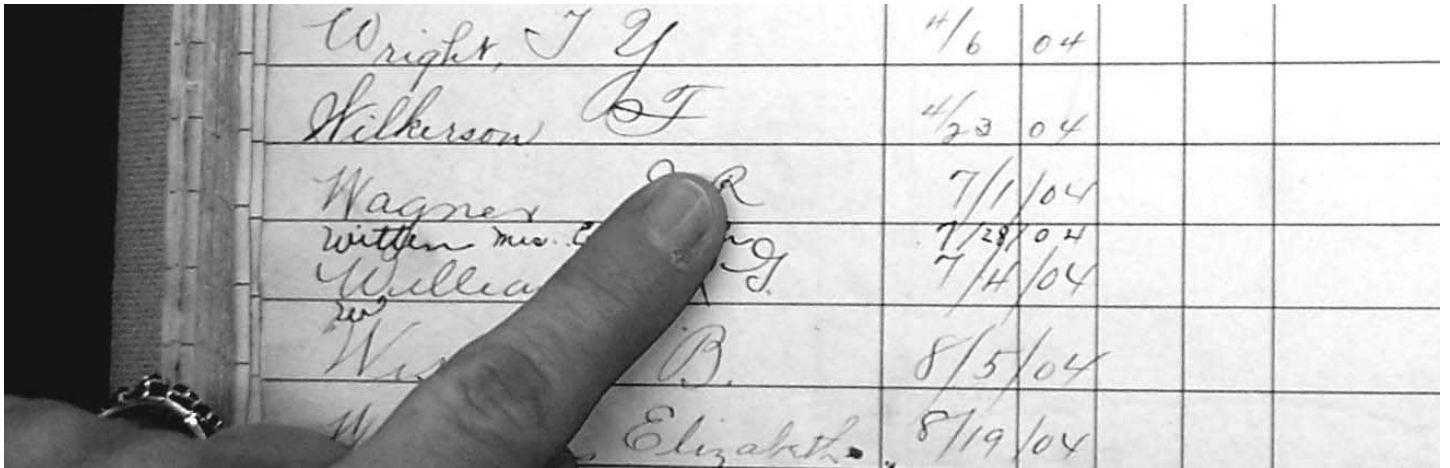 Wright, T Y 4/6 04
Wilkerson T 4/23 04
Wagner R 7/1/04
Witten Mrs. 7/28/04
G. 7/4/04
B. 8/5/04
Elizabeth 8/19/04